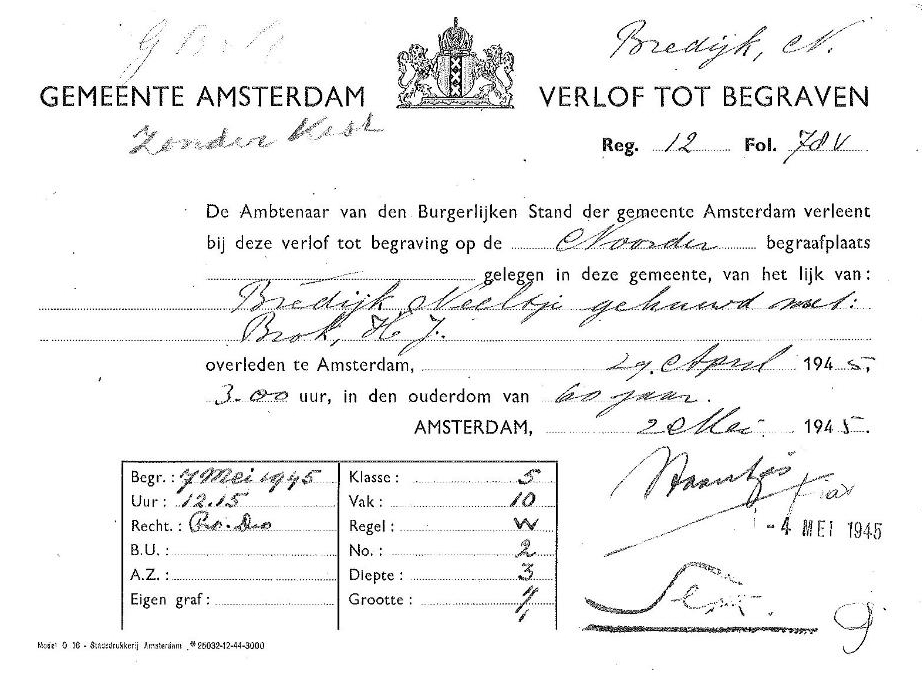 Bredijk, N.
GEMEENTE AMSTERDAM VERLOF TOT BEGRAVEN
Zonder Kist
Reg. 12 Fol. 78V
De Ambtenaar van den Burgerlijken Stand der gemeente Amsterdam verleent
bij deze verlof tot begraving op de Noorder begraafplaats
gelegen in deze gemeente, van het lijk van:
Bredijk, Neeltje gehuwd met:
Brok, H. J.
overleden te Amsterdam, 29 April 1945,
3.00 uur, in den ouderdom van 60 jaar.
AMSTERDAM, 2 Mei 1945.
Begr.: 7 Mei 1945 Klasse: 5
Uur: 12.15 Vak: 10
Recht.: Pro. Deo Regel: W
B.U.: No.: 2
A.Z.: Diepte: 3
Eigen graf: Grootte:
-4 MEI 1945
Model G 16 - Stadsdrukkerij Amsterdam * 25032-12-44-3000